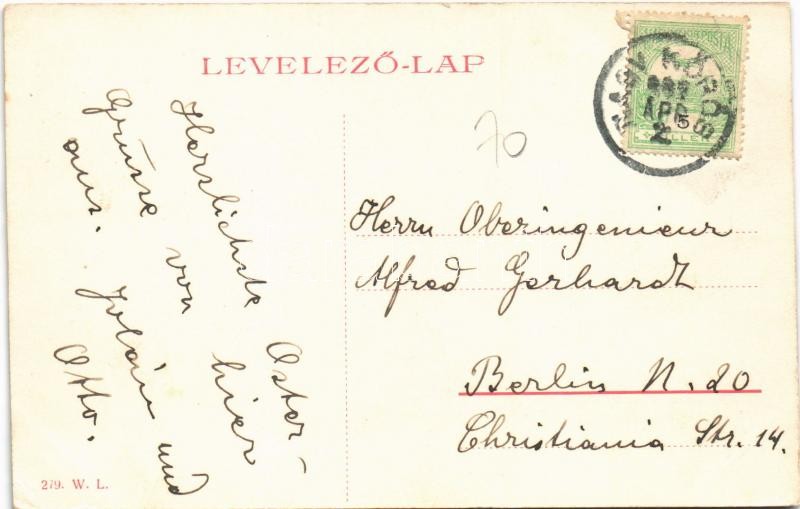 LEVELEZŐ-LAP
70
Herzlichste Oster-
Grüsse von hier
aus. Zolán und
Otto.
Herrn Oberingenieur
Alfred Gerhardt
Berlin N. 20
Christiania Str. 14.
NAGY KŐRÖS
APR
2
5
279. W. L.